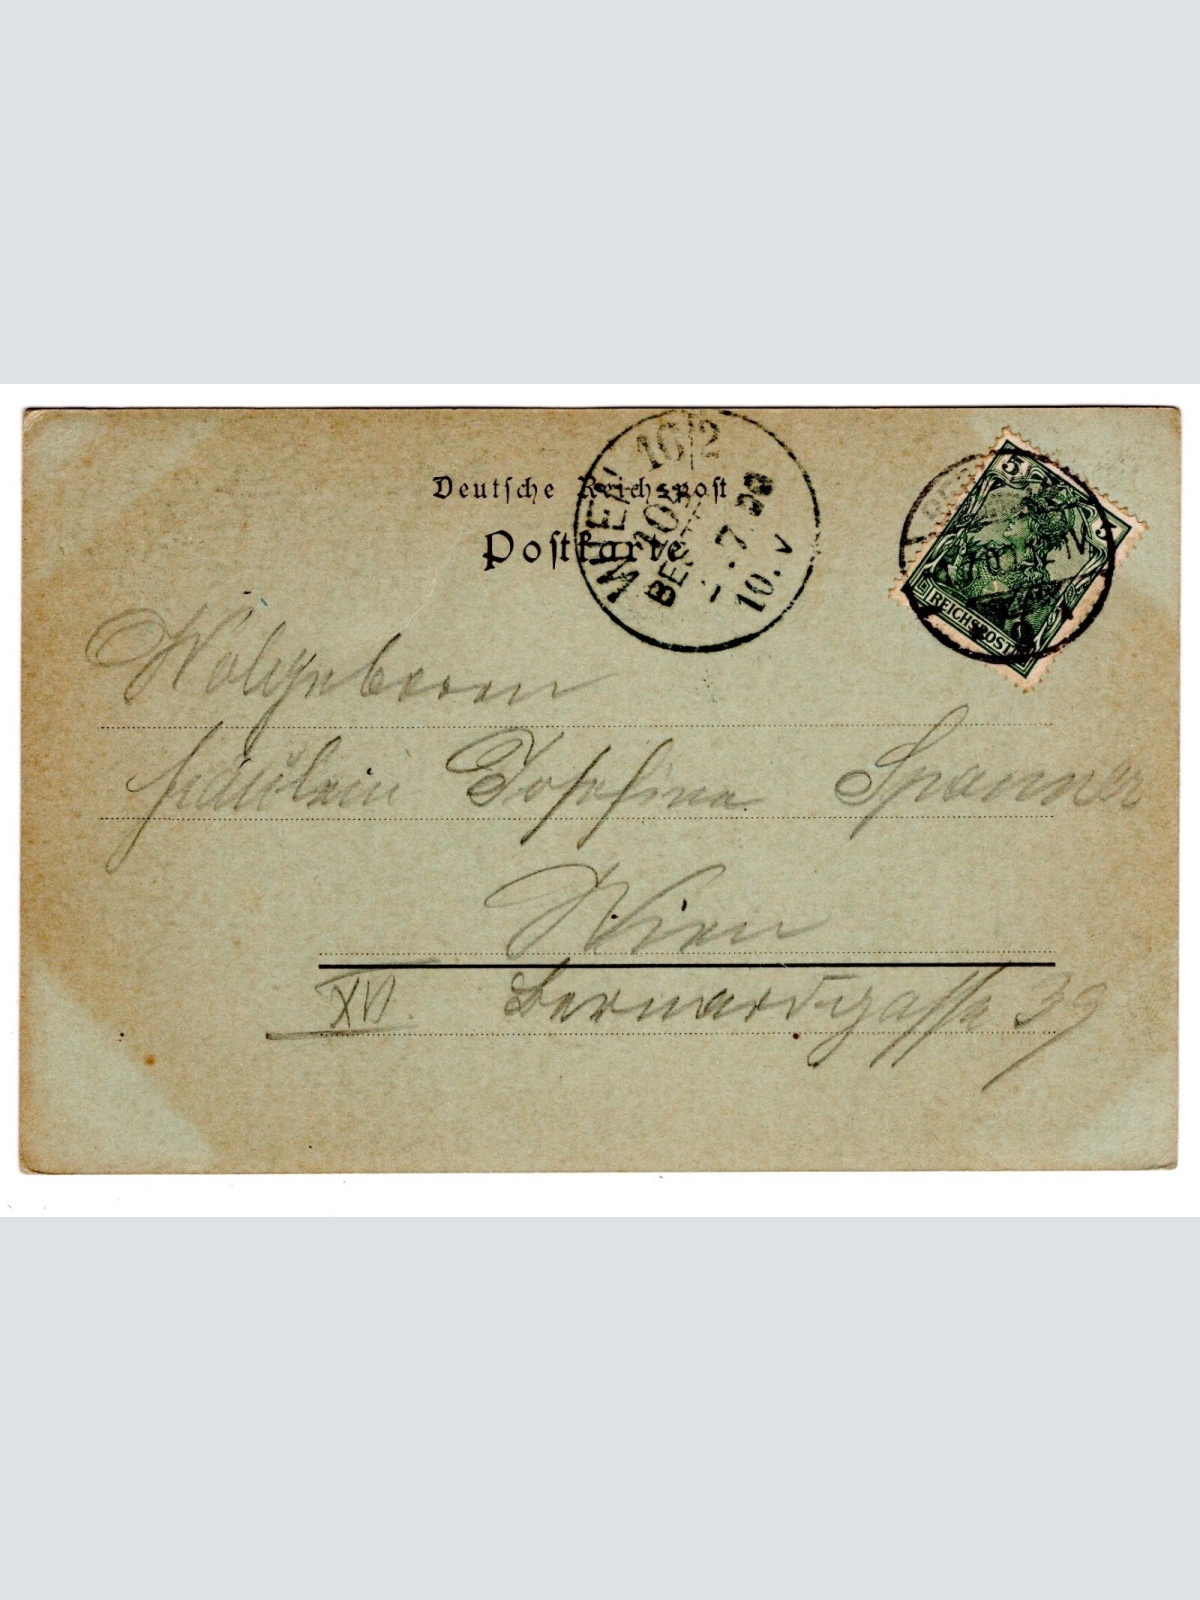 Deutsche Reichspost
Postkarte
WIEN 16/2
10
BEST
7.
10. V
5 5
REICHSPOST
Wolgeboren
Fräulein Josefine Spanner
Wien
XVI. Bernardgasse 39